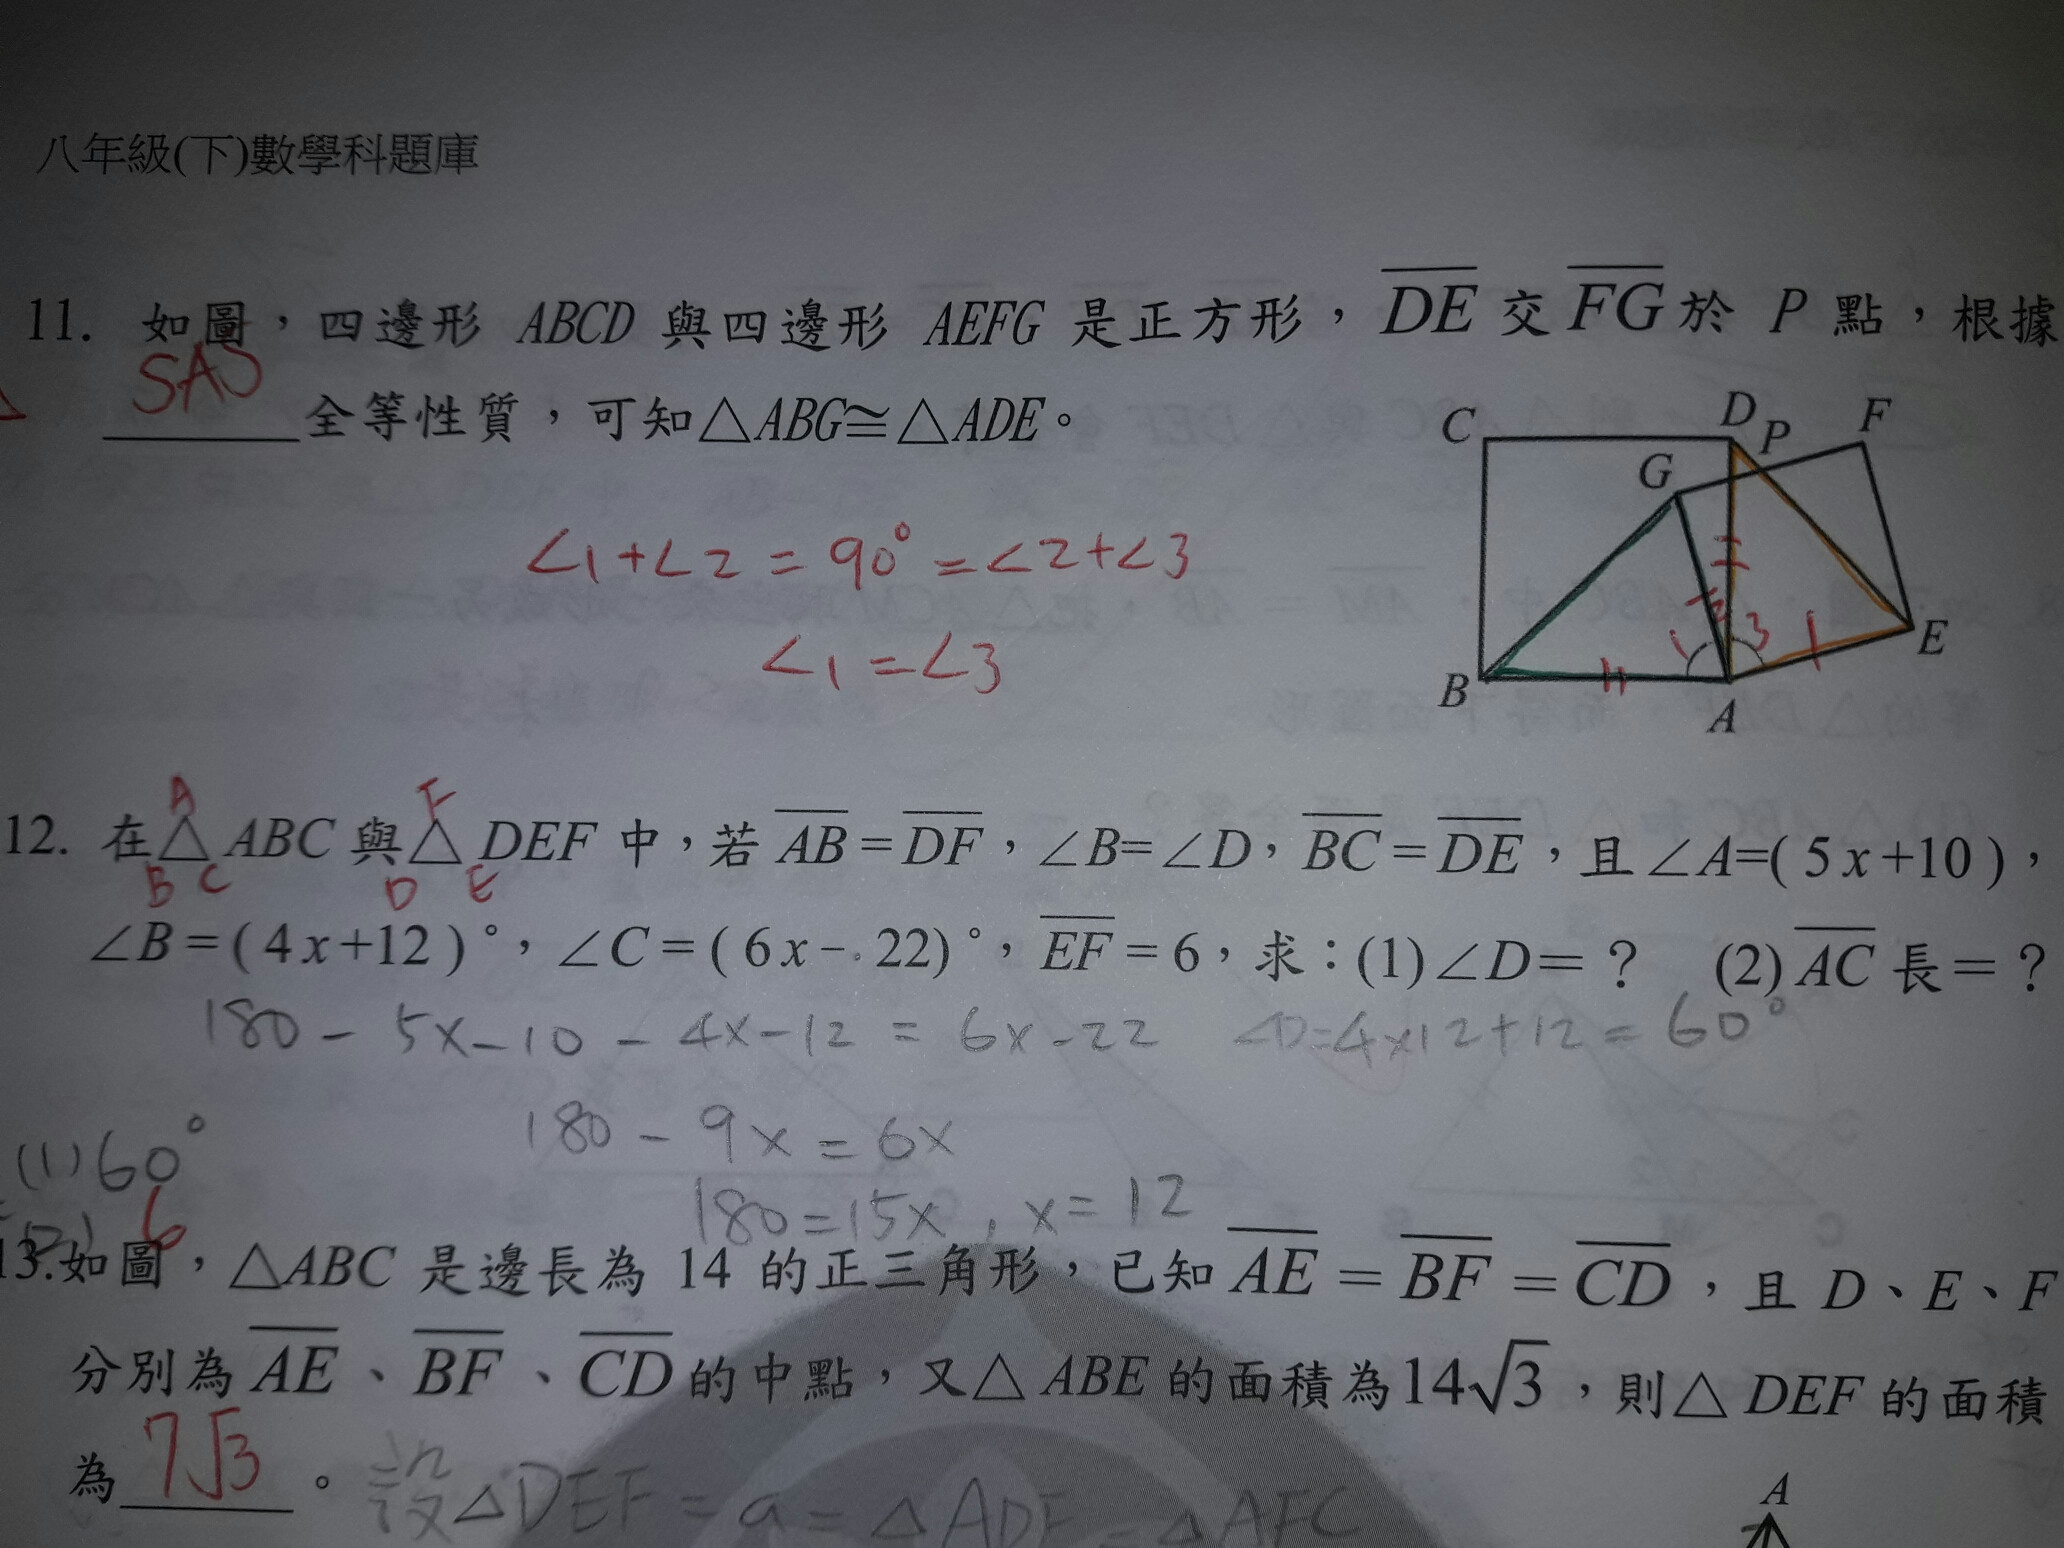 八年級(下)數學科題庫
11. 如圖，四邊形 ABCD 與四邊形 AEFG 是正方形，DE 交 FG 於 P 點，根據
SAS 全等性質，可知△ABG≅△ADE。
C D P F
G
E
B A
1 2 3
∠1+∠2=90°=∠2+∠3
∠1=∠3
A F
12. 在△ABC 與△DEF 中，若 AB=DF，∠B=∠D，BC=DE，且∠A=(5x+10)，
B C D E
∠B=(4x+12)°，∠C=(6x-22)°，EF=6，求：(1)∠D=？ (2)AC 長=？
180-5x-10-4x-12=6x-22 ∠D=4×12+12=60°
180-9x=6x
(1)60°
180=15x，x=12
(2) 6
13.如圖，△ABC 是邊長為 14 的正三角形，已知 AE=BF=CD，且 D、E、F
分別為 AE、BF、CD 的中點，又△ABE 的面積為14√3，則△DEF 的面積
為 7√3 。 設△DEF=a=△ADF=△AFC
A